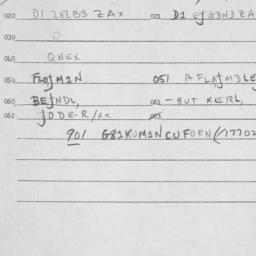 020 D1 ZEZB3 ZAX 022 D1 EJG3N3ZA
030 O
040 QNEX
050 FLOJM1N 051 AFLAJM3LE
060 BEJNDL, 062 - BUT KERL,
062 JODE-R/XX 063
901 G81KUM1NCUFORN(17702